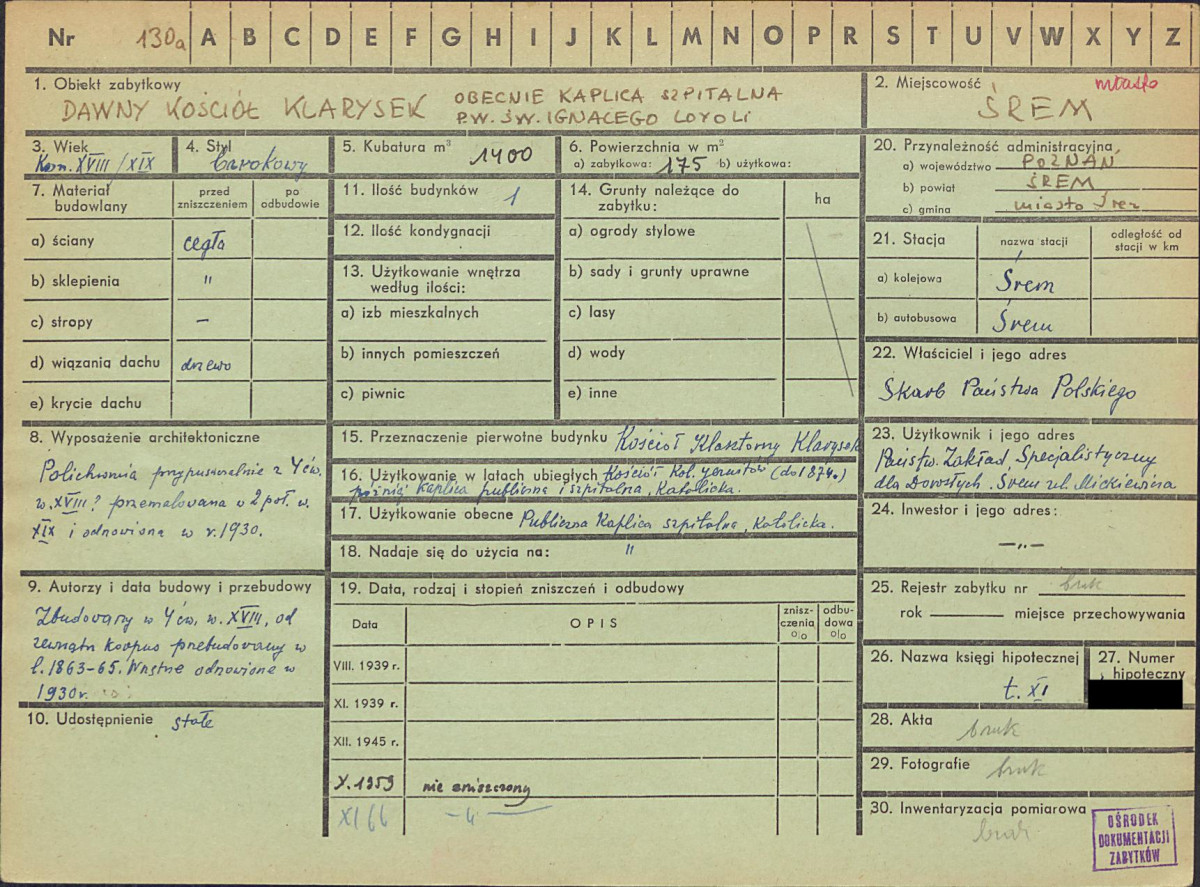 Nr 130a A B C D E F G H I J K L M N O P R S T U V W X Y Z
1. Obiekt zabytkowy
DAWNY KOŚCIÓŁ KLARYSEK OBECNIE KAPLICA SZPITALNA
P.W. ŚW. IGNACEGO LOYOLI
2. Miejscowość miasto
ŚREM
3. Wiek
Kon. XVIII/XIX
4. Styl
barokowy
5. Kubatura m³ 1400
6. Powierzchnia w m²
a) zabytkowa: 175 b) użytkowa:
7. Materiał budowlany
przed zniszczeniem
po odbudowie
a) ściany cegła
b) sklepienia "
c) stropy –
d) wiązania dachu drzewo
e) krycie dachu
8. Wyposażenie architektoniczne
Polichromia przypuszczalnie z 4 ćw.
w. XVIII? przemalowana w 2 poł. w.
XIX i odnowiona w r. 1930.
9. Autorzy i data budowy i przebudowy
Zbudowany w 4 ćw. w. XVIII, od
zewnątrz korpus przebudowany w
l. 1863-65. Wnętrze odnowione w
1930r.
10. Udostępnienie stałe
11. Ilość budynków 1
12. Ilość kondygnacji
13. Użytkowanie wnętrza
według ilości:
a) izb mieszkalnych
b) innych pomieszczeń
c) piwnic
14. Grunty należące do
zabytku:
ha
a) ogrody stylowe
b) sady i grunty uprawne
c) lasy
d) wody
e) inne
15. Przeznaczenie pierwotne budynku Kościół Klasztorny Klarysek
16. Użytkowanie w latach ubiegłych Kościół Kol. jezuitów (do 1874r.)
później kaplica publiczna i szpitalna, Katolicka.
17. Użytkowanie obecne Publiczna Kaplica szpitalna, Katolicka.
18. Nadaje się do użycia na: "
19. Data, rodzaj i stopień zniszczeń i odbudowy
Data
OPIS
zniszczenia %
odbudowa %
VIII. 1939 r.
XI. 1939 r.
XII. 1945 r.
X. 1959 nie zniszczony
XI 66 -"-
20. Przynależność administracyjna
a) województwo POZNAŃ
b) powiat ŚREM
c) gmina miasto Śrem
21. Stacja
nazwa stacji
odległość od
stacji w km
a) kolejowa Śrem
b) autobusowa Śrem
22. Właściciel i jego adres
Skarb Państwa Polskiego
23. Użytkownik i jego adres
Państw. Zakład Specjalistyczny
dla Dorosłych. Śrem ul. Mickiewicza
24. Inwestor i jego adres:
–"–
25. Rejestr zabytku nr brak
rok miejsce przechowywania
26. Nazwa księgi hipotecznej
t. XI
27. Numer
hipoteczny
28. Akta
brak
29. Fotografie
brak
30. Inwentaryzacja pomiarowa
brak
OŚRODEK
DOKUMENTACJI
ZABYTKÓW